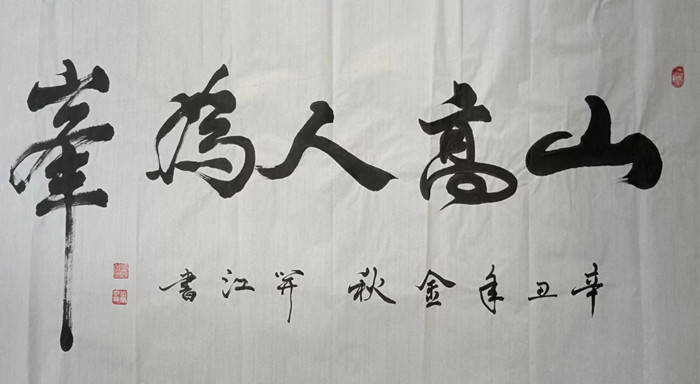 山高人為峯
辛丑年金秋 開江書